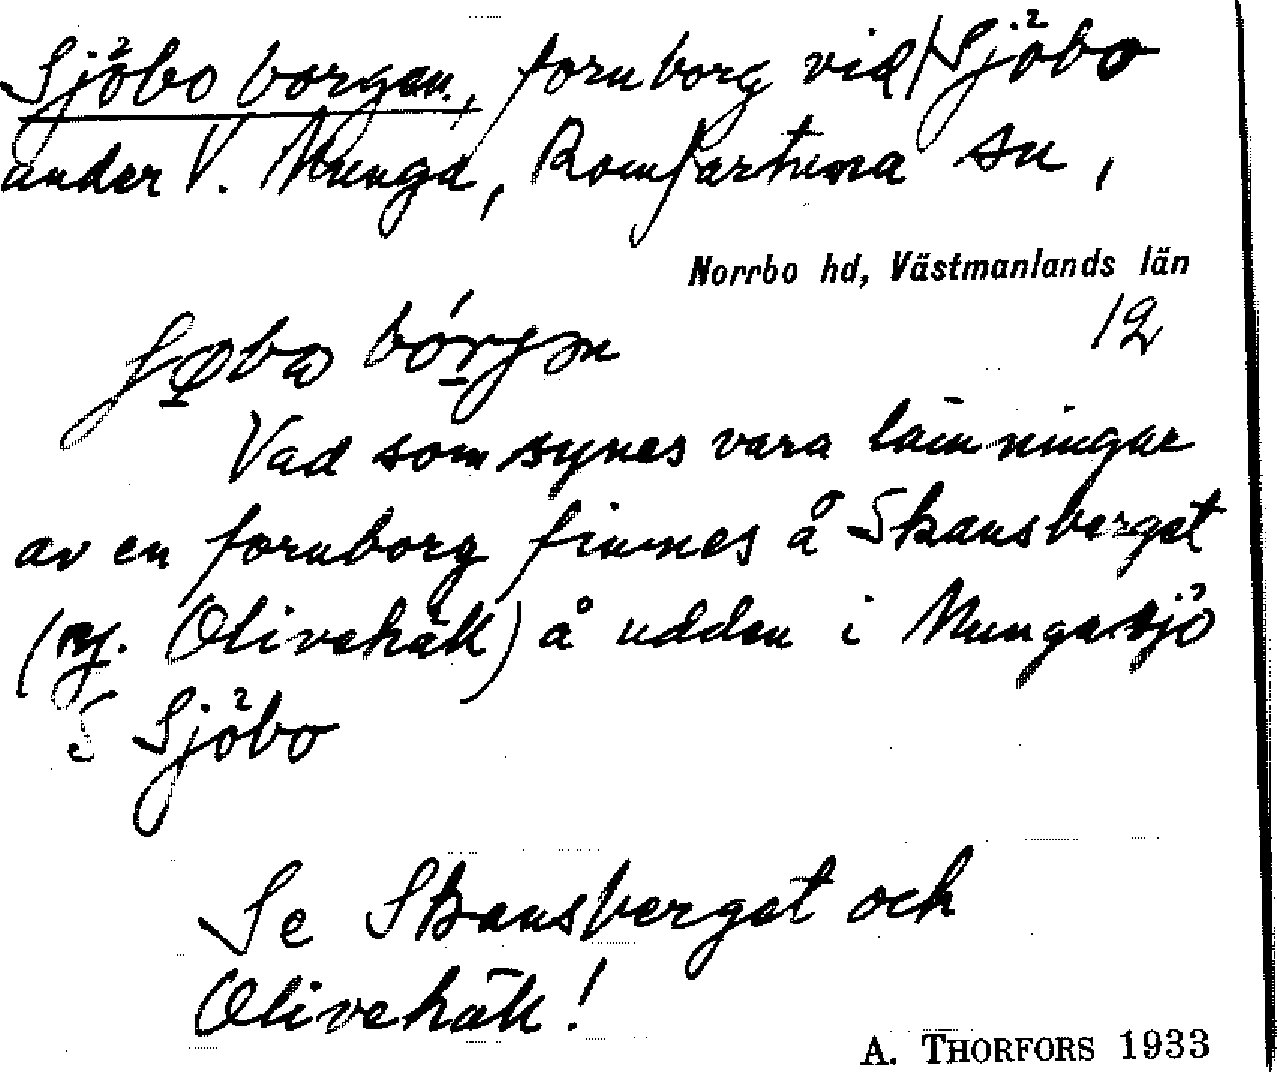 Sjöbo borgen, fornborg vid Sjöbo
under V. Munga, Romfartuna sn,
Norrbo hd, Västmanlands län
12
Vad som synes vara lämningar
av en fornborg finnes å Skansberget
(rg. Olivehäll) å udden i Mungasjö
S Sjöbo
Se Skansberget och
Olivehäll!
A. THORFORS 1933